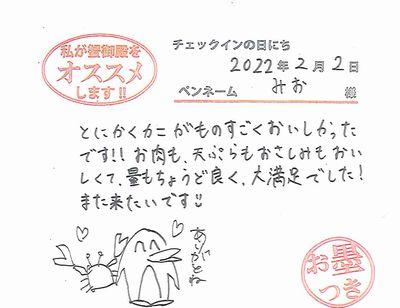 私が蟹御殿を
オススメ
します!!
チェックインの日にち
2022年2月2日
ペンネーム みお 様
とにかくカニがものすごくおいしかった
です!! お肉も、天ぷらもおさしみもおい
しくて、量もちょうど良く、大満足でした!
また来たいです!!
ありがとね
お墨
つき